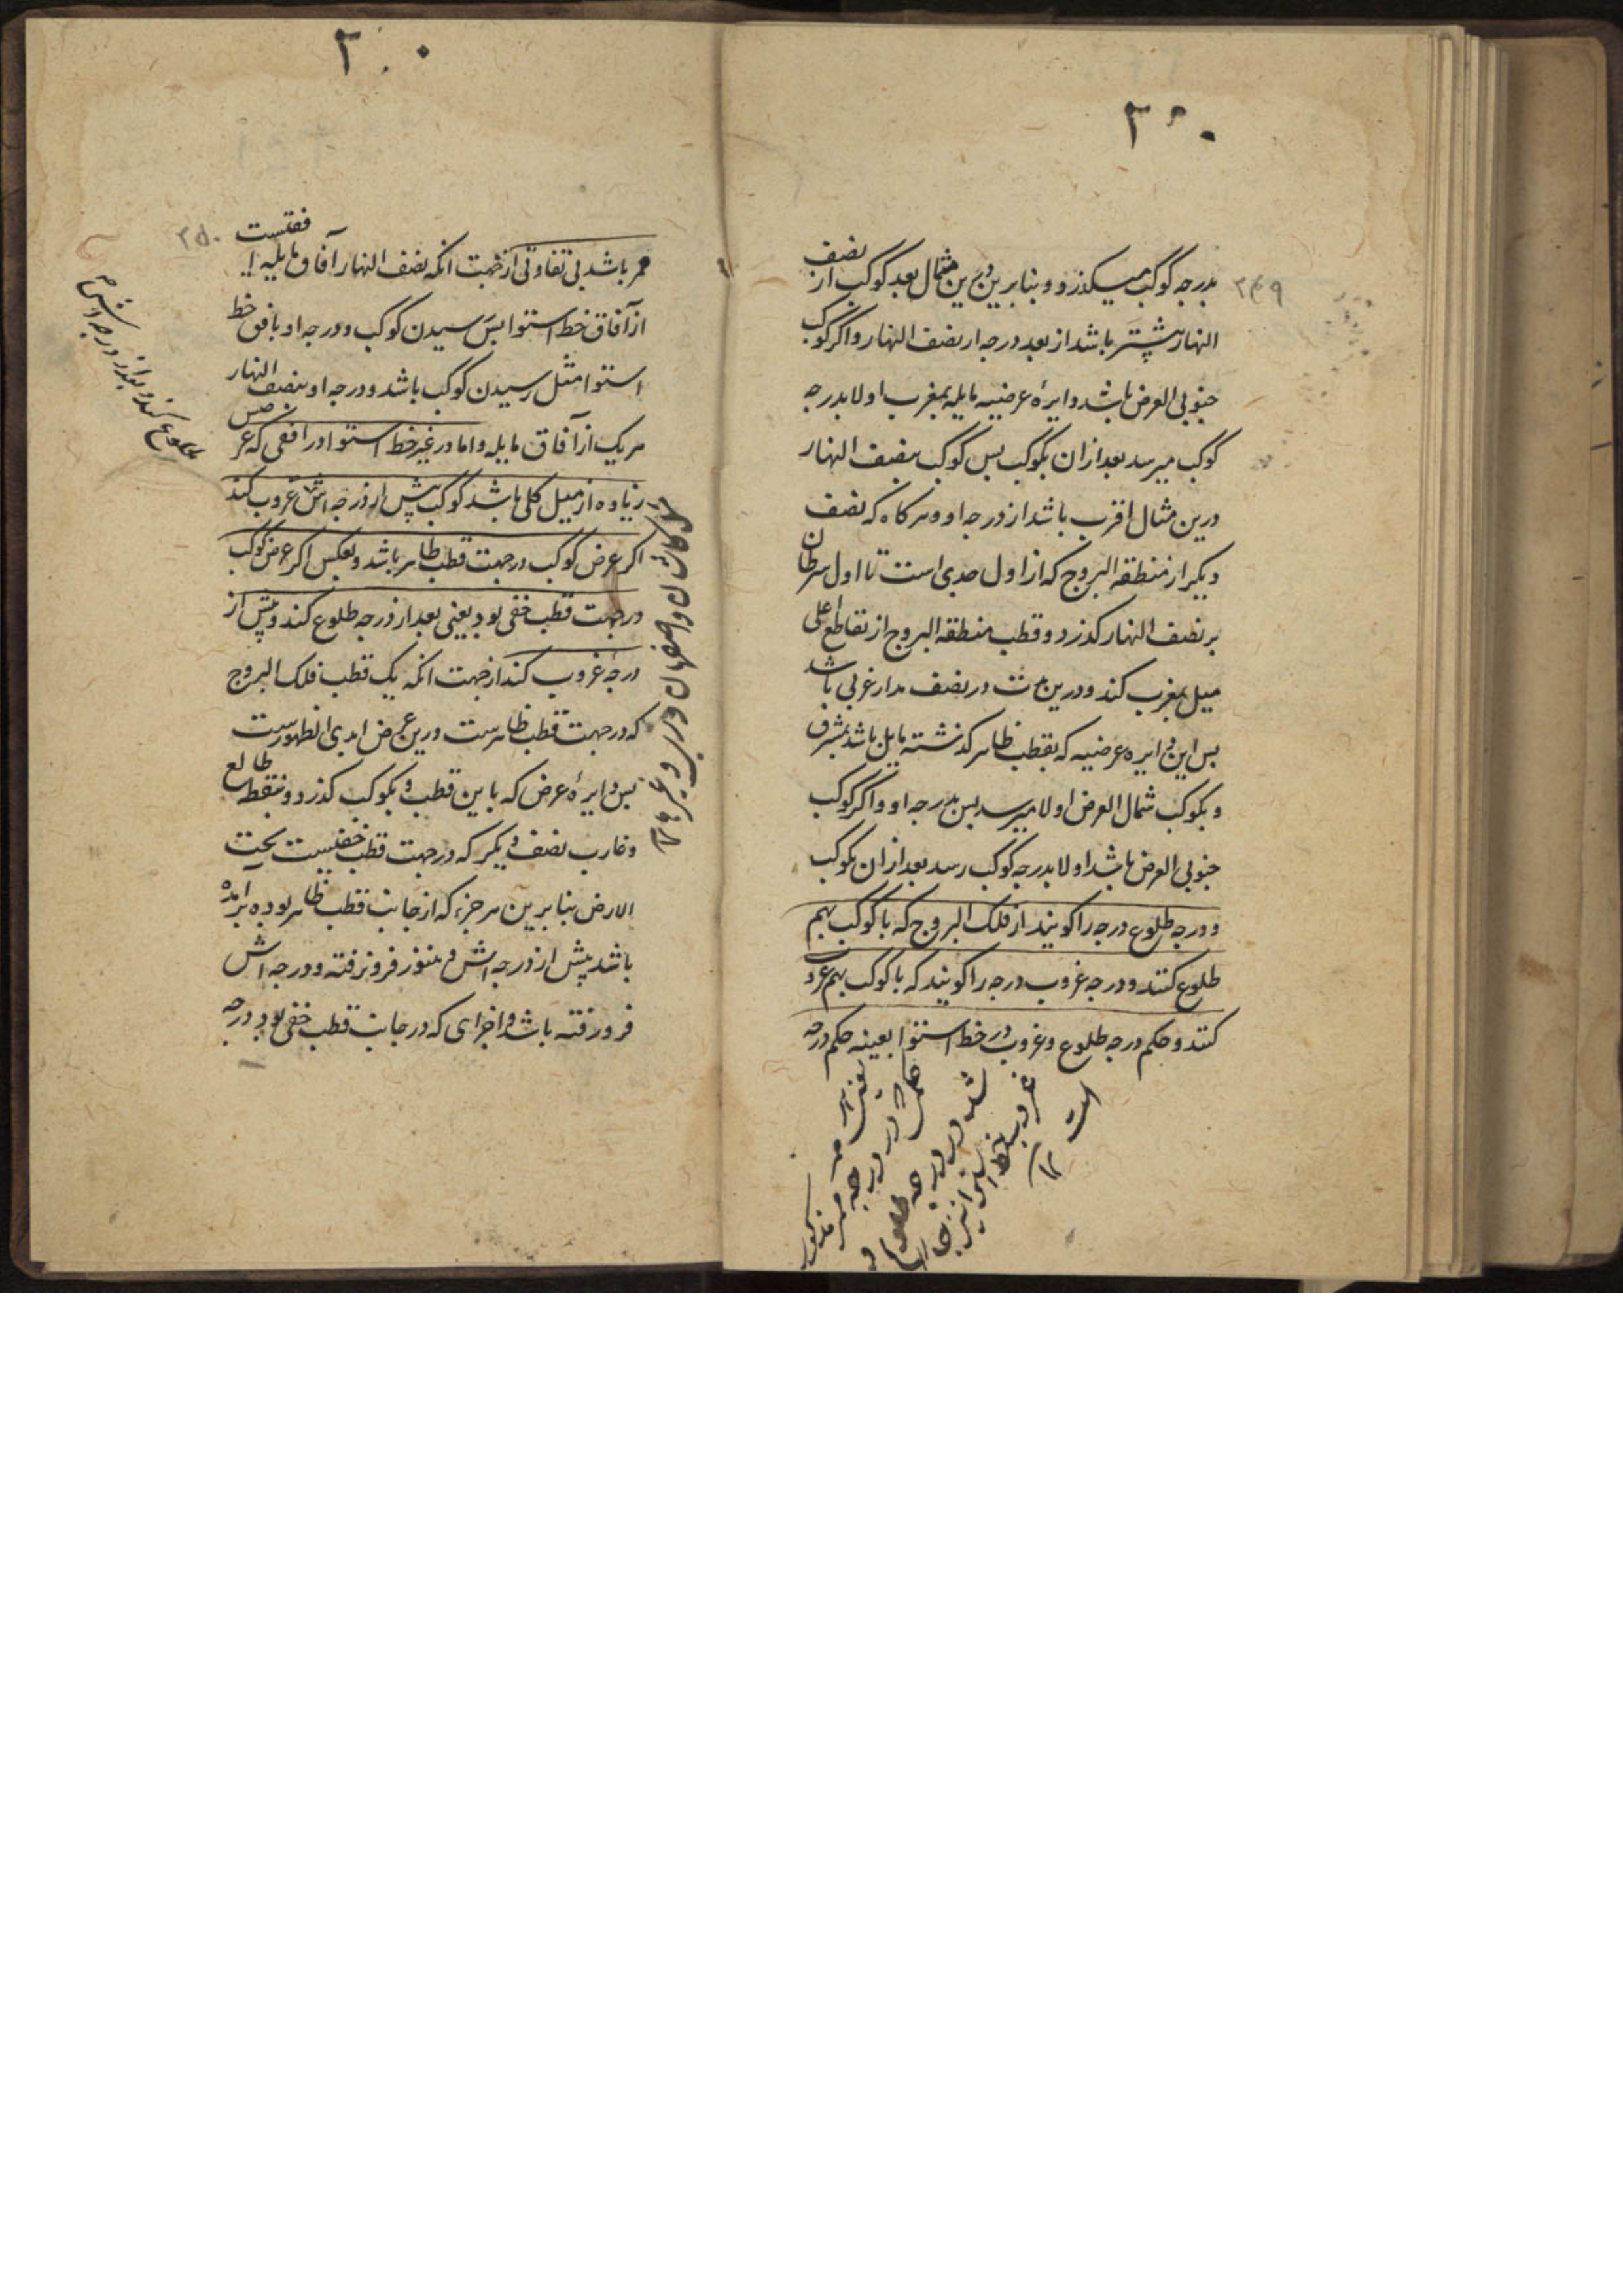 ۳۴۹
بدرجه کوکب میکذرد و بنابرین درین مثال بعد کوکب از نصف
النهار بیشتر باشد از بعد درجه از نصف النهار و اکر کوکب
جنوبی العرض باشد دایرهٔ عرضیه مایله بمغرب اولا بدرجه
کوکب میرسد بعد از ان بکوکب پس کوکب بنصف النهار
درین مثال اقرب باشد از درجه او و هر کاه که نصف
دیکر از منطقه البروج که از اول جدی است تا اول سرطان
بر نصف النهار کذرد و قطب منطقه البروج از تقاطع اعلی
میل بمغرب کند و درین مدت در نصف مدار غربی باشد
پس این دایره عرضیه که بقطب ظاهر کذشته مایل باشد بمشرق
و بکوکب شمال العرض اولا میرسد پس بدرجه او و اکر کوکب
جنوبی العرض باشد اولا بدرجه کوکب رسد بعد از ان بکوکب
و درجه طلوع درجه را کویند از فلک البروج که با کوکب بهم
طلوع کنند و درجه غروب درجه را کویند که با کوکب بهم غروب
کنند و حکم درجه طلوع و غروب در خط استوا بعینه حکم درجه
۳۵۰
ممر باشد بی تفاوتی از جهت انکه نصف النهار آفاق مایله افقیست
از آفاق خط استوا پس رسیدن کوکب و درجه او بافق خط
استوا مثل رسیدن کوکب باشد و درجه او بنصف النهار
هریک از آفاق مایله و اما در غیر خط استوا در افقی که عرضش
زیاده از میل کلی باشد کوکب پیش از درجه اش غروب کند
اکر عرض کوکب در جهت قطب ظاهر باشد و بعکس اکر عرض کوکب
در جهت قطب خفی بود یعنی بعد از درجه طلوع کند و پیش از
درجه غروب کند از جهت انکه یک قطب فلک البروج
که در جهت قطب ظاهرست درین عرض ابدی الظهورست
پس دایرهٔ عرض که باین قطب و بکوکب کذرد و بنقطه طالع
و غارب نصف دیکر که در جهت قطب خفیست تحت
الارض بنابرین هر جزء که از جانب قطب ظاهر بوده برامده
باشد پیش از درجه اش و هنوز فرو نرفته و درجه اش
فرو رفته باشد و اجزای که در جانب قطب خفی بود درجه